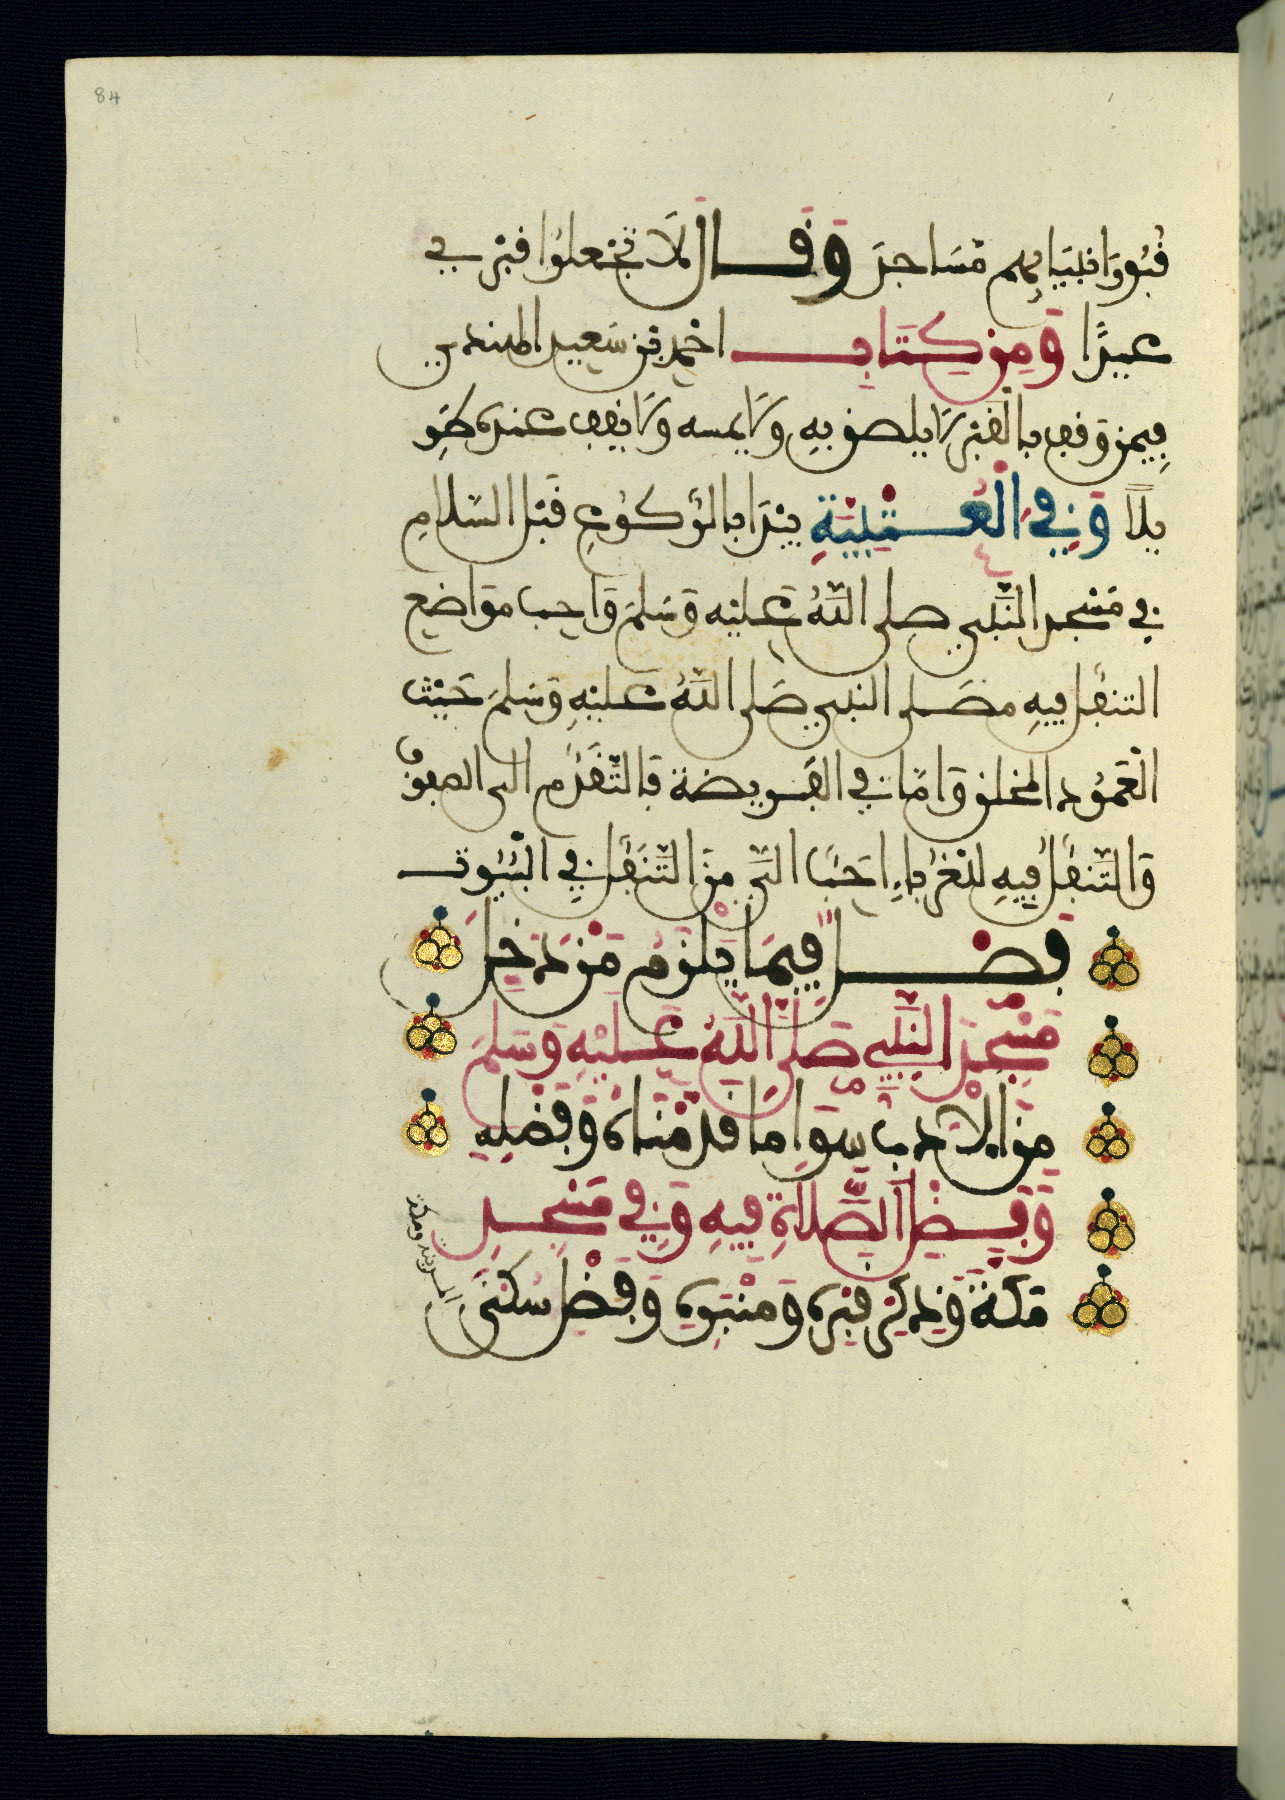 84
قُبُورَ انبِيَايِهِم مَسَاجِدَ وَقَالَ لَا تَجْعَلُوا قَبْرِي
عِيدًا وَمِن كِتَابِ احْمَد بْن سَعِيد الهندي
فِيمَن وَقَفَ بِالقَبْرِ لَا يلصق بِهِ وَلَا يمسه وَلَا يقف عنده طَوِ
يلًا وَفِي الْعُتْبِيَّةِ يبْدَا بِالرُّكُوعِ قَبْلَ السَّلَامِ
فِي مَسْجِدِ النَّبِي صلى اللَّهُ عَلَيْهِ وَسَلَّمَ وَاحِب مَوَاضِع
التنفل فِيهِ مصَلى النبي صَلى اللَّهُ عَلَيْهِ وَسَلَّمَ حَيْث
الْعَمُودِ المخلق وَامَّا فِي الفَرِيضَة فَالتَّقَدُّم الى الصفوف
وَالتَّنَفُّلُ فِيهِ لِلْغُرَبَاءِ احَبُّ الَيَّ مِنَ التَّنَفُّلِ فِي الْبُيُوت
فَصْل فِيمَا يَلْزَمُ مَنْ دَخَلَ
مَسْجِدَ النَّبِيِّ صَلَّى اللَّهُ عَلَيْهِ وَسَلَّمَ
مِنَ الادب سِوَا مَا قدمْنَاهُ وَفَضْلِهِ
وَفَضْلِ الصَّلَاةِ فِيهِ وَفِي مَسْجِدِ
مَكَّةَ وَذِكْرِ قَبْرِهِ وَمنْبَرِهِ وَفَضْلِ سُكْنَى
المدينة ومكة